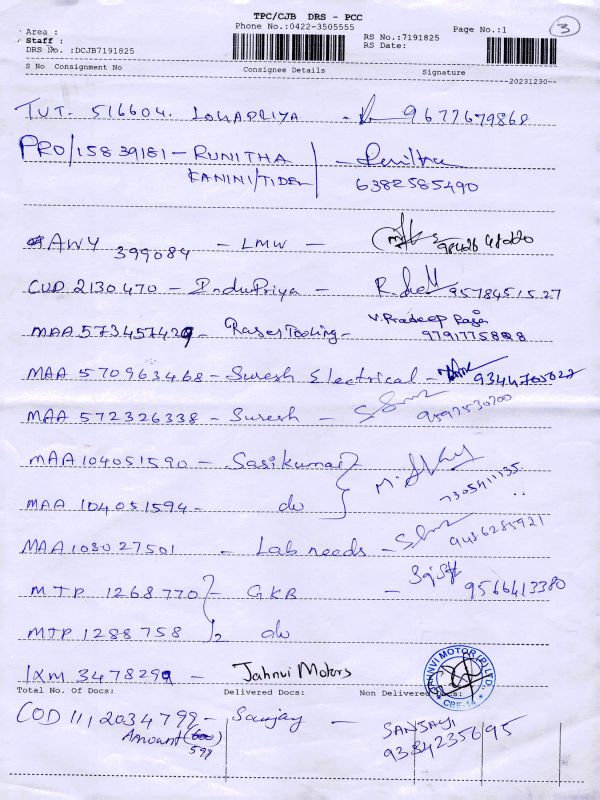 TPC/CJB DRS - PCC
Phone No.:0422-3505555
Area :
Staff :
DRS No. :DCJB7191825
RS No.:7191825
RS Date:
Page No.:1
3
S No Consignment No Consignee Details Signature
20231230
TUT. 516604. LOKAPRIYA - 9677679868
PRO/15839181 - RUNITHA
KANINI/TIDEL
6382585490
AWY 399084 - LMW -
CUD 2130470 - InduPriya - 9578451527
MAA 573457429 - Raser Tooling - V. Pradeep Raja
9791775888
MAA 570963468 - Suresh Electrical - 9344705022
MAA 572326338 - Suresh - 9597530700
MAA 104051590 - Sasikumar
7305411135
MAA 104051594 - do
MAA 108027501 - Lab needs - 9486285921
MTP 1268770 - GKB - 9566413380
MTP 1288758 do
IXM 3478299 - Jahnvi Motors
JAHNVI MOTOR (P) LTD. CBE-14
Total No. Of Docs: Delivered Docs: Non Delivered Docs:
COD 1112034799 - Sanjay - SANJAY
9384235695
Amount
599